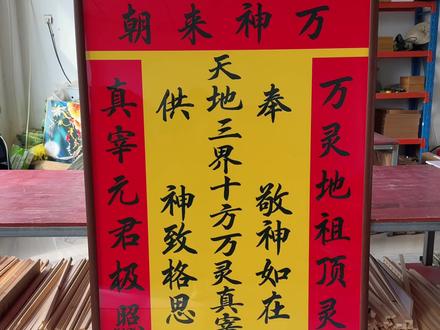 万神来朝
万灵地祖顶灵
奉
敬神如在
天地三界十方万灵真宰
供
神致格思
真宰元君极照